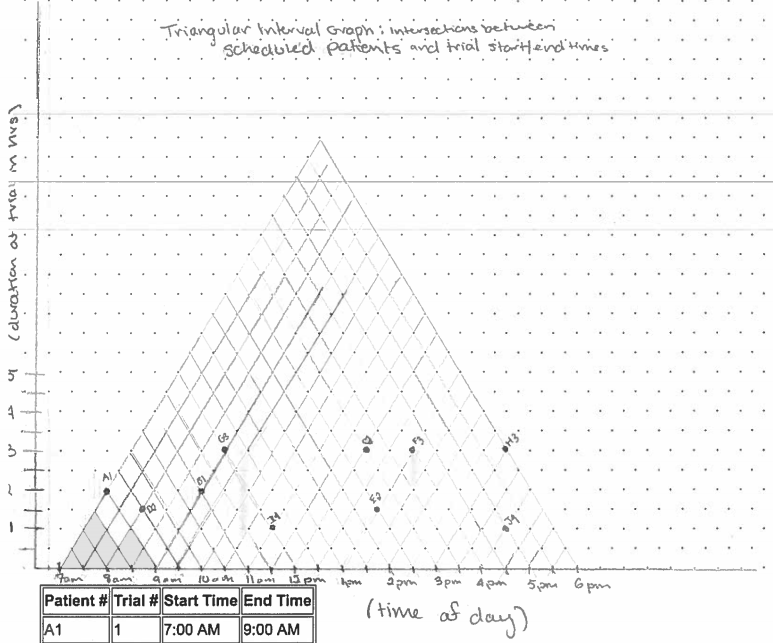 Triangular Interval Graph: intersections between
scheduled patients and trial start/end times
(duration at trial in hrs)
5
4
3
2
1
G3
F3
H3
A1
D2
B1
E2
I4
J4
7am 8am 9am 10am 11am 12pm 1pm 2pm 3pm 4pm 5pm 6pm
(time of day)
Patient # Trial # Start Time End Time
A1 1 7:00 AM 9:00 AM